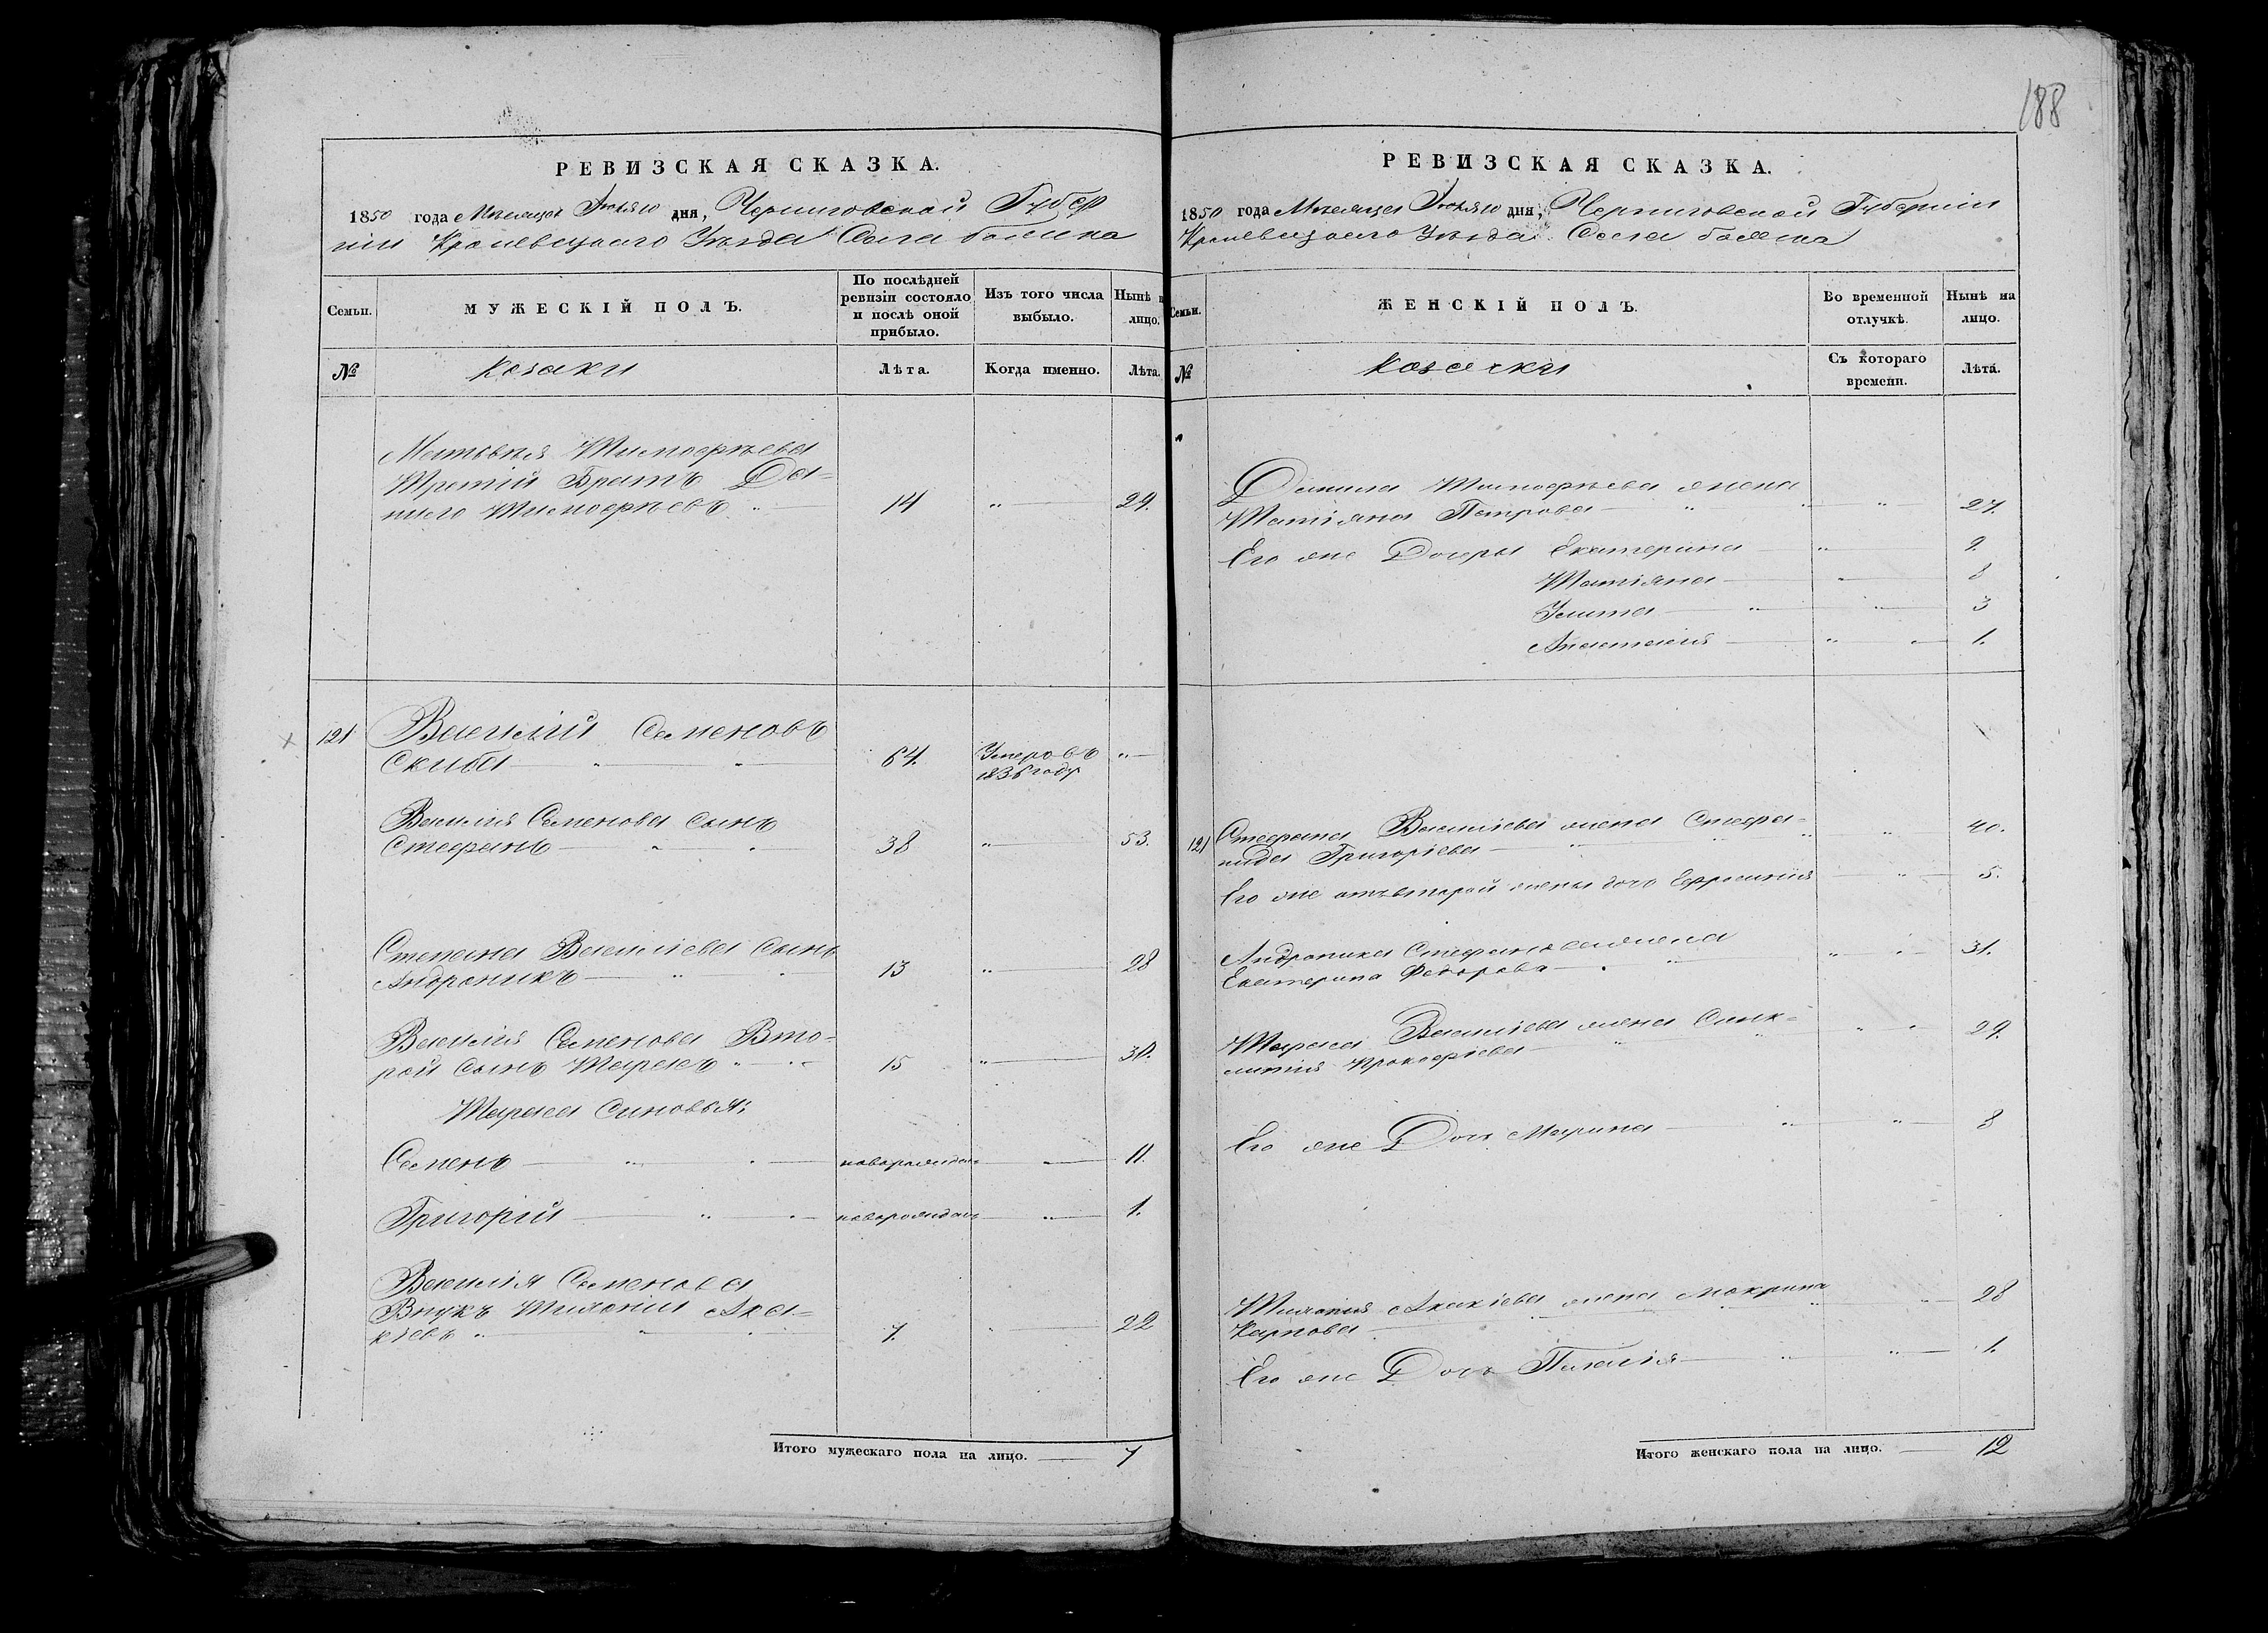 188
РЕВИЗСКАЯ СКАЗКА.
1850 года Месяца Июля 10 дня, Черниговской Губер
ніи Кролевецкаго Уѣзда Села
Семьи.
МУЖЕСКІЙ ПОЛЪ.
По послѣдней ревизіи состояло и послѣ оной прибыло.
Изъ того числа выбыло.
Нынѣ н лицо.
№
Козаки
Лѣта.
Когда именно.
Лѣта.
Матвѣя Тимофѣева
Третій Братъ Да=
нило Тимофѣевъ " 14 " 29.
121 Василій Семеновъ
Скиба " " 64. Умеръ въ 1836 году "
Василія Семенова Сынъ
Стефанъ " " 38 " 53.
Степана Василіева Сынъ
Андроникъ " " 13 " 28
Василія Семенова Вто=
рой Сынъ Тарасъ " " 15 " 30.
Тараса Синовья:
Семенъ " " новорожден " 11.
Григорій " " новорожден " 1.
Василія Семенова
Внукъ Акa=
кіевъ " " " 7. " 22
Итого мужескаго пола на лицо. 7
РЕВИЗСКАЯ СКАЗКА.
1850 года Месяца Июля 10 дня, Черниговской Губерніи
Кролевецкаго Уѣзда Села
Семьи.
ЖЕНСКІЙ ПОЛЪ.
Во временной отлучкѣ.
Нынѣ на лицо.
№
Козачки
Съ котораго времени.
Лѣта.
Данила Тимофѣева жена
Татіяна Петрова " " " 27.
Его же Дочеры Екатерина " 9.
Татіяна " 8
Улита " " 3
Анастасія " " 1.
121 Стефана Василіева жена Стефа=
нида Григоріева " " " " 40.
Его же отъ второй жены дочь Ефросинія " 5.
Андроника Стефанова жена
Екатерина Федорова " " " 31.
Тараса Василіева жена Синк=
литія Прокофіева " " " " 29.
Его же Дочь Марина " " 8
Акакіева жена Мокрина
Карпова " " " " 28
Его же Дочь Пелагія " " 1.
Итого женскаго пола на лицо. 12